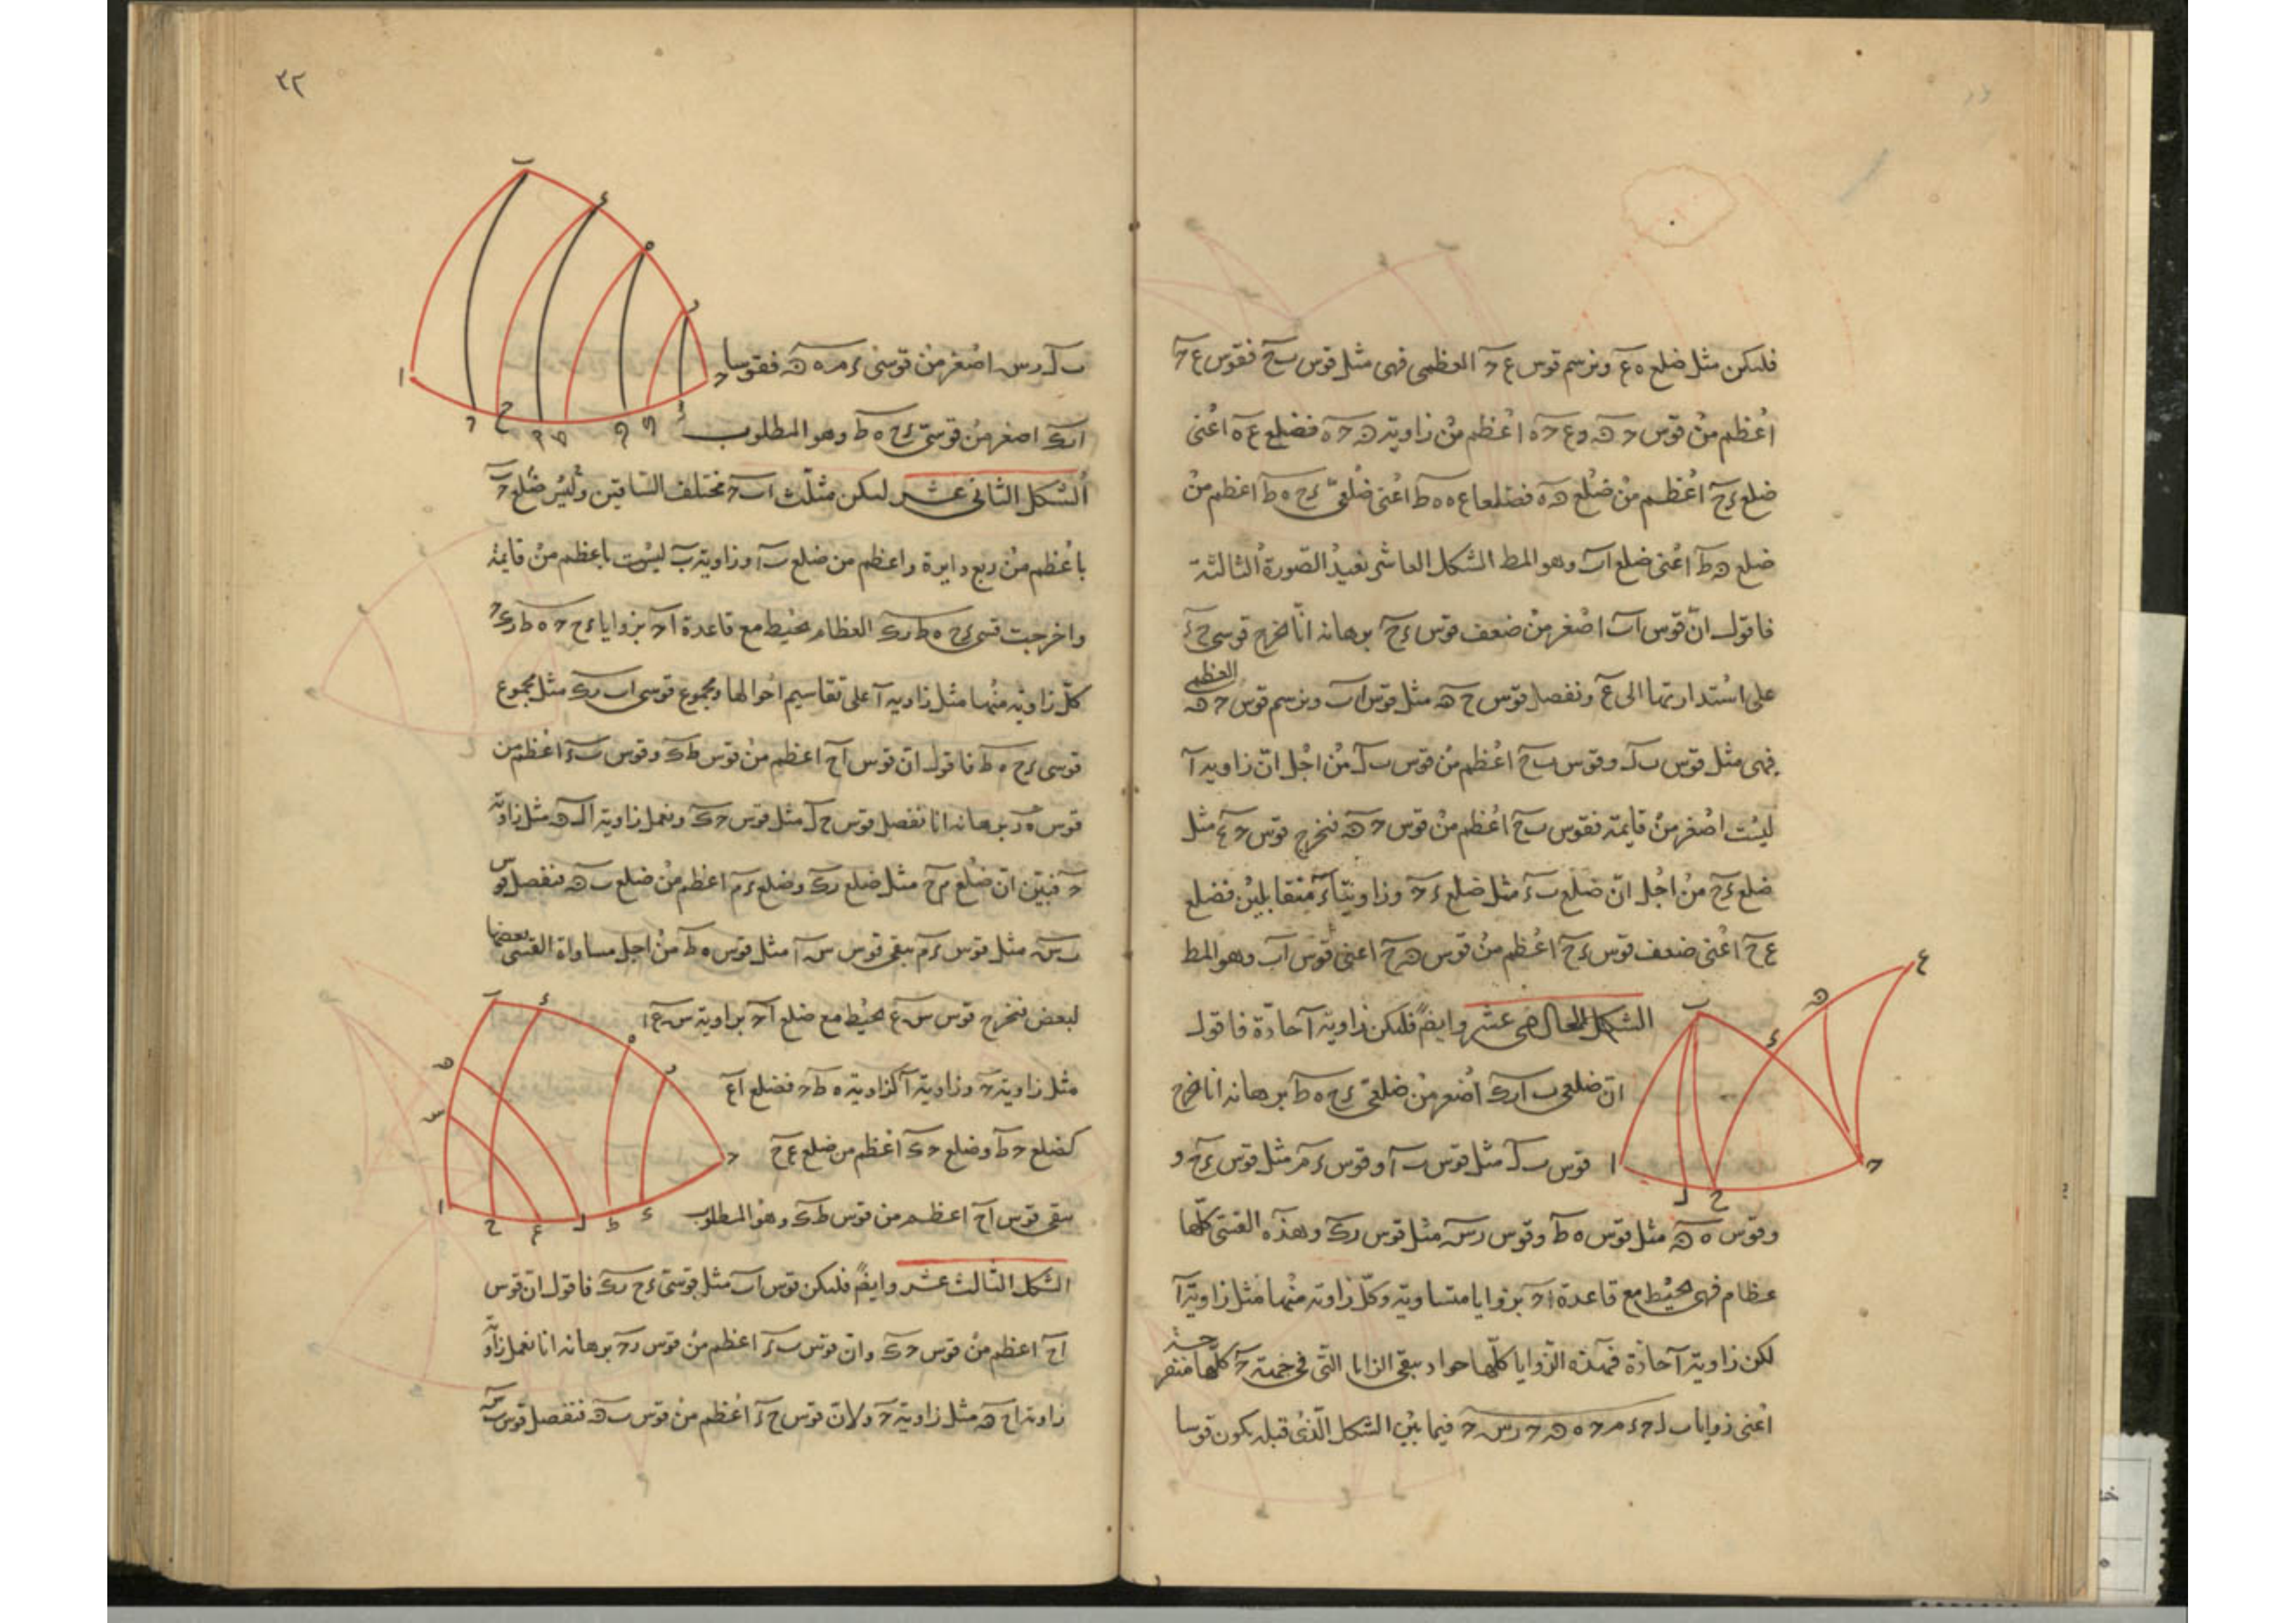 فليكن مثل ضلع ه ع ونرسم قوس ع ح العظمى فهى مثل قوس ب ح فقوس ع ح
اعظم من قوس ح ه و ع ح ه اعظم من زاوية ه ح ه فضلع ع ه اعنى
ضلع ء ح اعظم من ضلع ه ه فضلعا ع ه ه ط اعنى ضلعى ء ح ه ط اعظم من
ضلع ه ط اعنى ضلع ا ب وهو المط الشكل العاشر نعيد الصورة الثالثة
فاقول ان قوس ا ب اصغر من ضعف قوس ء ح برهانه انا نخرج قوسى ح ء
على استدارتها الى ع ونفصل قوس ح ه مثل قوس ا ب ونرسم قوس ح ه العظمى
فهى مثل قوس ب ل وقوس ب ح اعظم من قوس ب ل من اجل ان زاوية ا
ليست اصغر من قايمة فقوس ب ح اعظم من قوس ح ه فنخرج قوس ح ع مثل
ضلع ء ح من اجل ان ضلع ب ء مثل ضلع ء ح وزاويتا ء متقابلين فضلع
ع ح اعنى ضعف قوس ء ح اعظم من قوس ه ح اعنى قوس ا ب وهو المط
الشكل الحادى عشر وايضً فليكن زاوية ا حادة فاقول
ان ضلعى ب ا ر ك اصغر من ضلعى ء ح ه ط برهانه انا نخرج
قوس ب ل مثل قوس ب ا وقوس ء م مثل قوس ء ح و
وقوس ه ه مثل قوس ه ط وقوس ر س مثل قوس ر ك وهذه القسى كلها
عظام فهى تحيط مع قاعدة ا ح بزوايا متساوية وكل زاوية منها مثل زاوية ا
لكن زاوية ا حادة فهذه الزوايا كلها حواد يبقى الزايا التى فى جهة ح كلها منفرجة
اعنى زوايا ب ل ح ء م ح ه ه ح ر س ح فيما بين الشكل الذى قبله يكون قوسا
٣٢
ب ل ر س اصغر من قوسى ء م ه ه فقوسا
ا ب ر ك اصغر من قوسى ء ح ه ط وهو المطلوب
الشكل الثانى عشر ليكن مثلث ا ب ح مختلف الساقين وليس ضلع ح ب
باعظم من ربع دايرة واعظم من ضلع ب ا وزاوية ب ليست باعظم من قايمة
واخرجت قسى ء ح ه ط ر ك العظام تحيط مع قاعدة ا ح بزوايا ء ح ح ه ط ر ك ح
كل زاوية منها مثل زاوية ا على تقاسيم احوالها ومجموع قوسى ا ب ر ك مثل مجموع
قوسى ء ح ه ط فاقول ان قوس ا ح اعظم من قوس ط ك وقوس ب ء اعظم من
قوس ه ر برهانه انا نفصل قوس ح ل مثل قوس ح ك ونعمل زاوية ا ل ه مثل زاوية
ح فتبين ان ضلع م ح مثل ضلع ر ك وضلع ء م اعظم من ضلع ب ه فنفصل قوس
ب س مثل قوس ء م يبقى قوس س ا مثل قوس ه ط من اجل مساواة القسى بعضها
لبعض فنخرج قوس س ع تحيط مع ضلع ا ح بزاوية س ع ا
مثل زاوية ح وزاوية ا كزاوية ه ط ح فضلع ا ع
كضلع ح ط وضلع ح ك اعظم من ضلع ع ح
يبقى قوس ا ح اعظم من قوس ط ك وهو المطلوب
الشكل الثالث عشر وايضً فليكن قوس ا ب مثل قوسى ء ح ر ك فاقول ان قوس
ا ح اعظم من قوس ح ك وان قوس ب ء اعظم من قوس ر ح برهانه انا نعمل زاوية
زاوية ا ح ه مثل زاوية ح ولان قوس ح ء اعظم من قوس ب ه فنفصل قوس ب س